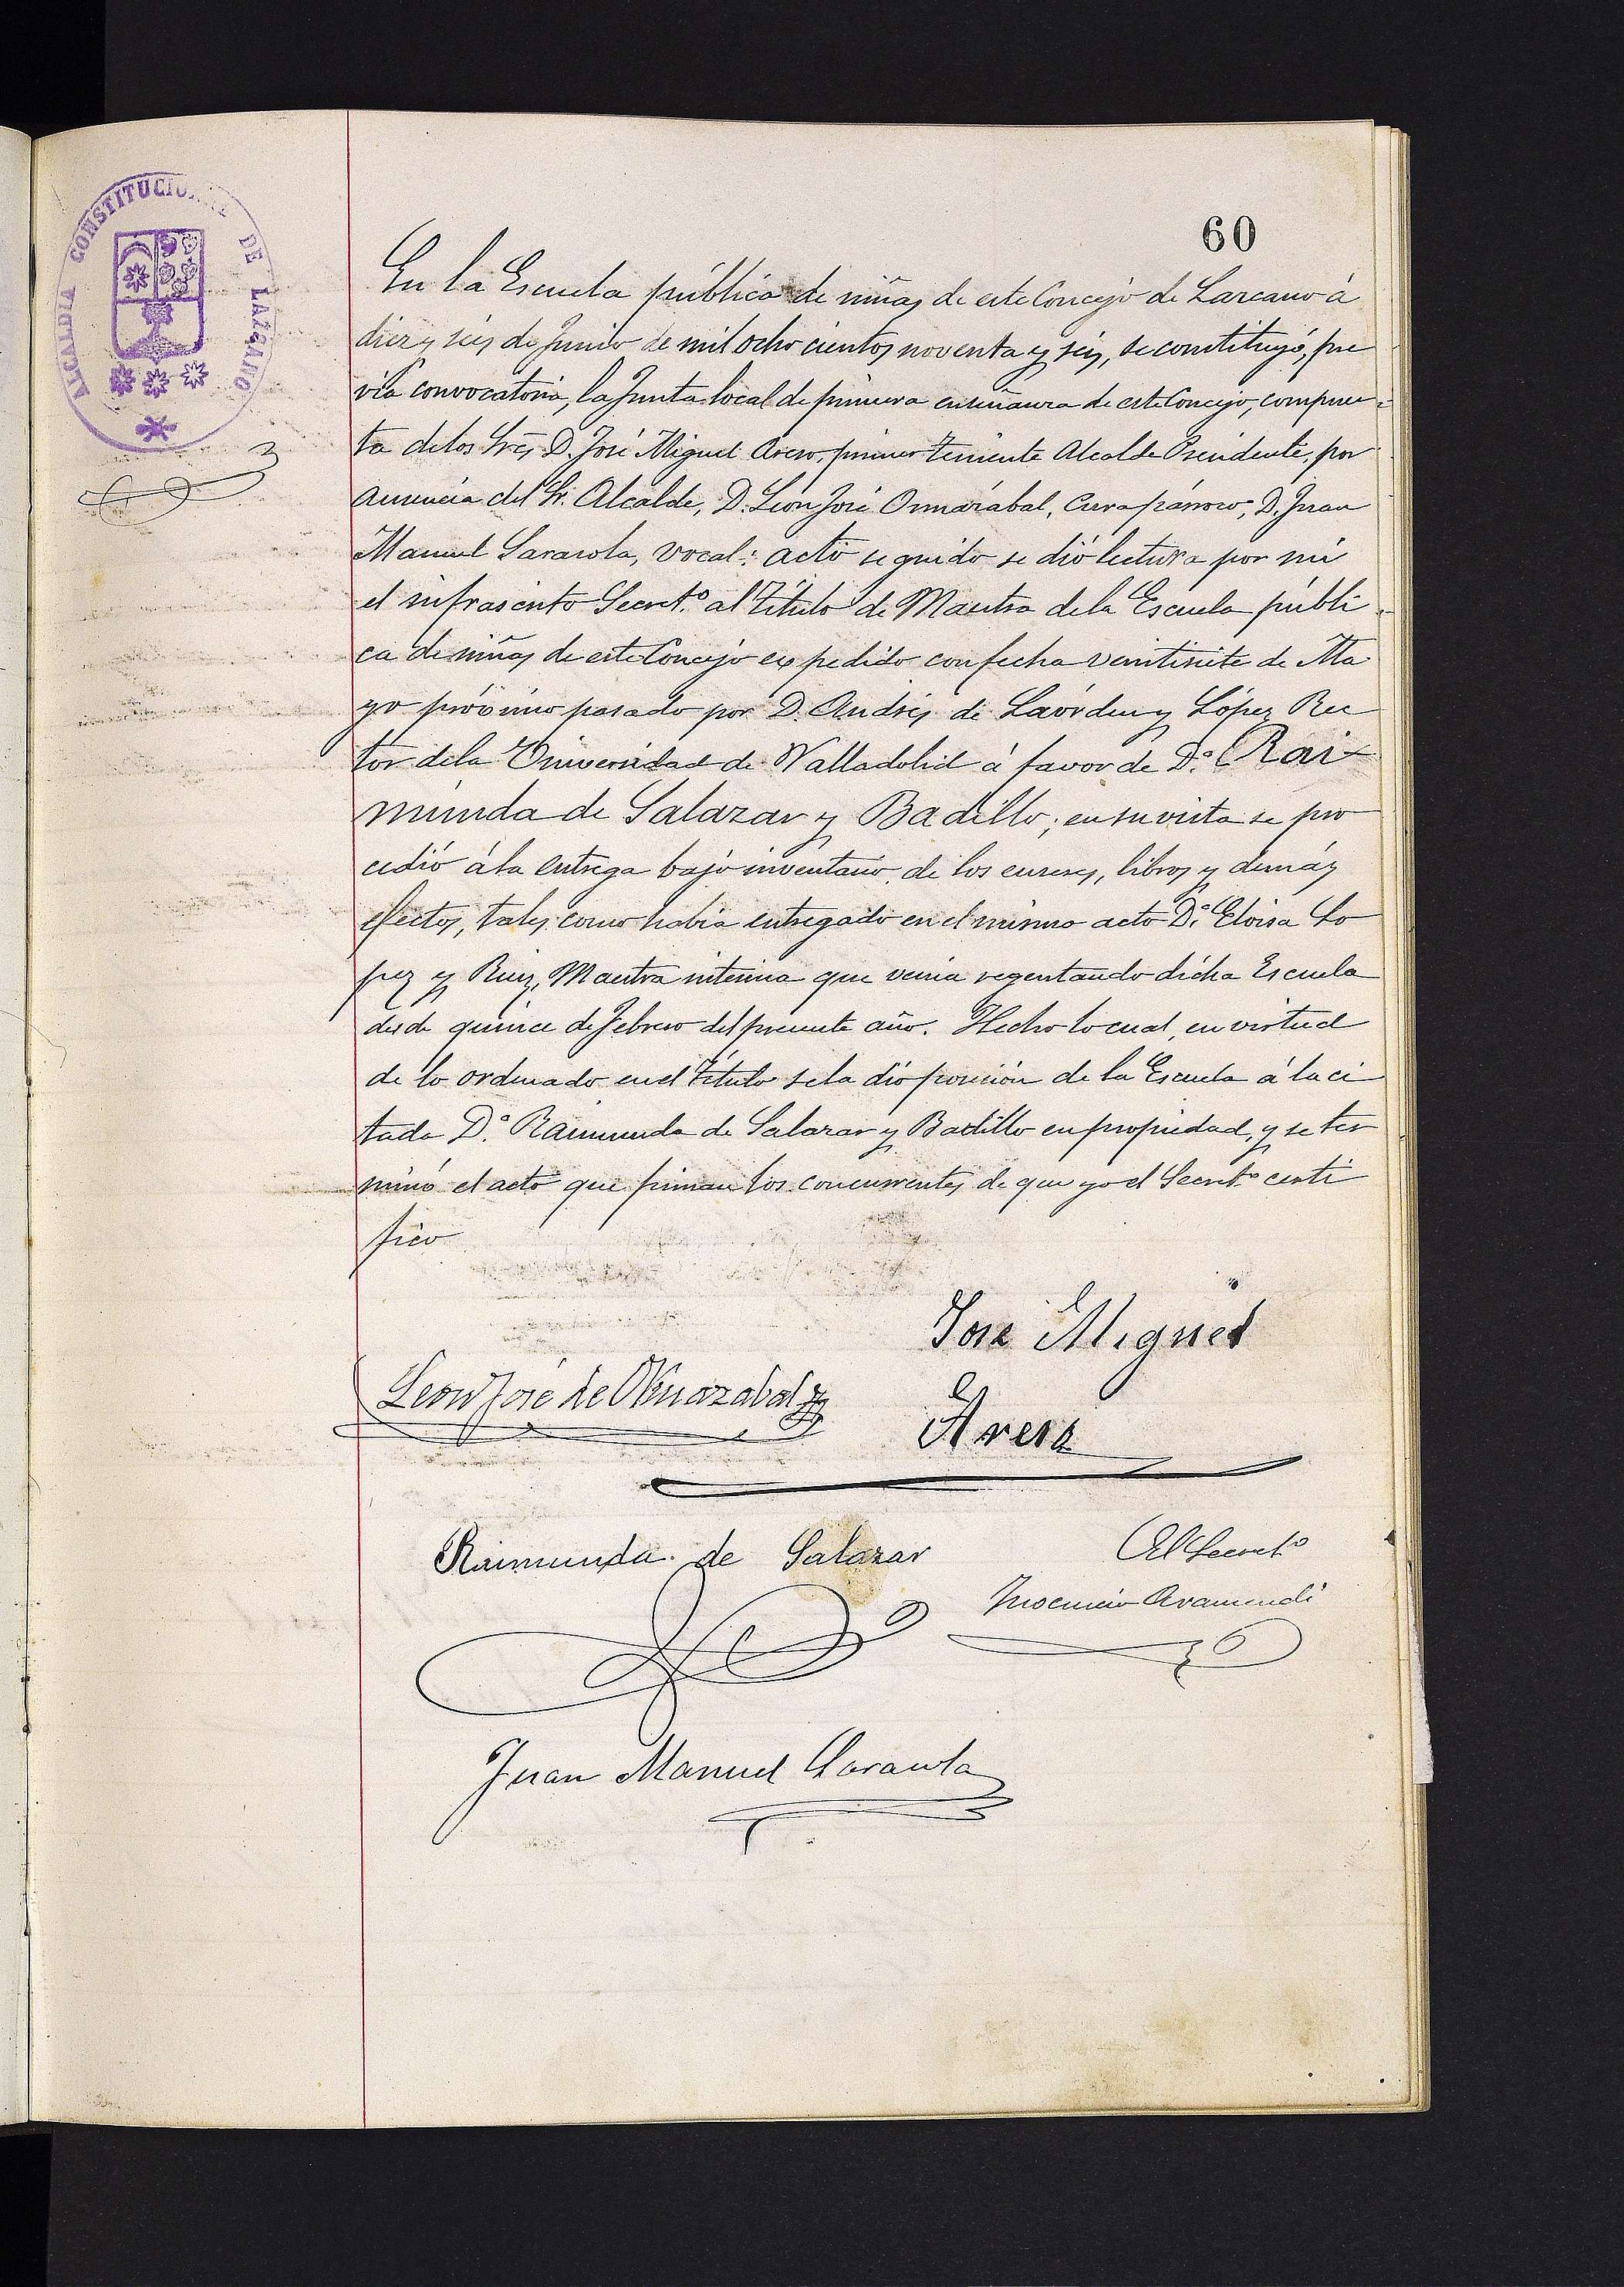 ALCALDIA CONSTITUCIONAL DE LAZCANO
60
En la Escuela pública de niñas de este Concejo de Lazcano á
diez y seis de Junio de mil ocho cientos noventa y seis, se constituyó, pre
via convocatoria, la Junta local de primera enseñanza de este Concejo, compues-
ta de los Sres D. José Miguel Areso, primer teniente Alcalde Presidente, por
ausencia del Sr. Alcalde, D. León José Ormazábal, Cura párroco, D. Juan
Manuel Sarasola, vocal: acto seguido se dió lectura por mi
el infrascrito Secret.º al Título de Maestra de la Escuela públi-
ca de niñas de este Concejo expedido con fecha veintisiete de Ma
yo próximo pasado por D. Andrés de Laórden y López Rec
tor de la Universidad de Valladolid á favor de D.ª Rai
munda de Salazar y Badillo; en su vista se pro
cedió á la entrega bajo inventario, de los enseres, libros y demás
efectos, tales como había entregado en el mismo acto D.ª Eloisa Lo
pez y Ruiz, Maestra interina que venia regentando dicha Escuela
desde quince de Febrero del presente año. Hecho lo cual, en virtud
de lo ordenado en el Título se la dió posesión de la Escuela á la ci
tada D.ª Raimunda de Salazar y Badillo en propiedad, y se ter
minó el acto que firman los concurrentes de que yo el Secret.º certi
fico
José Miguel
Leon José de Ormazabal
Areso
Raimunda de Salazar
El Secret.º
Inocencio Aramendi
Juan Manuel Sarasola